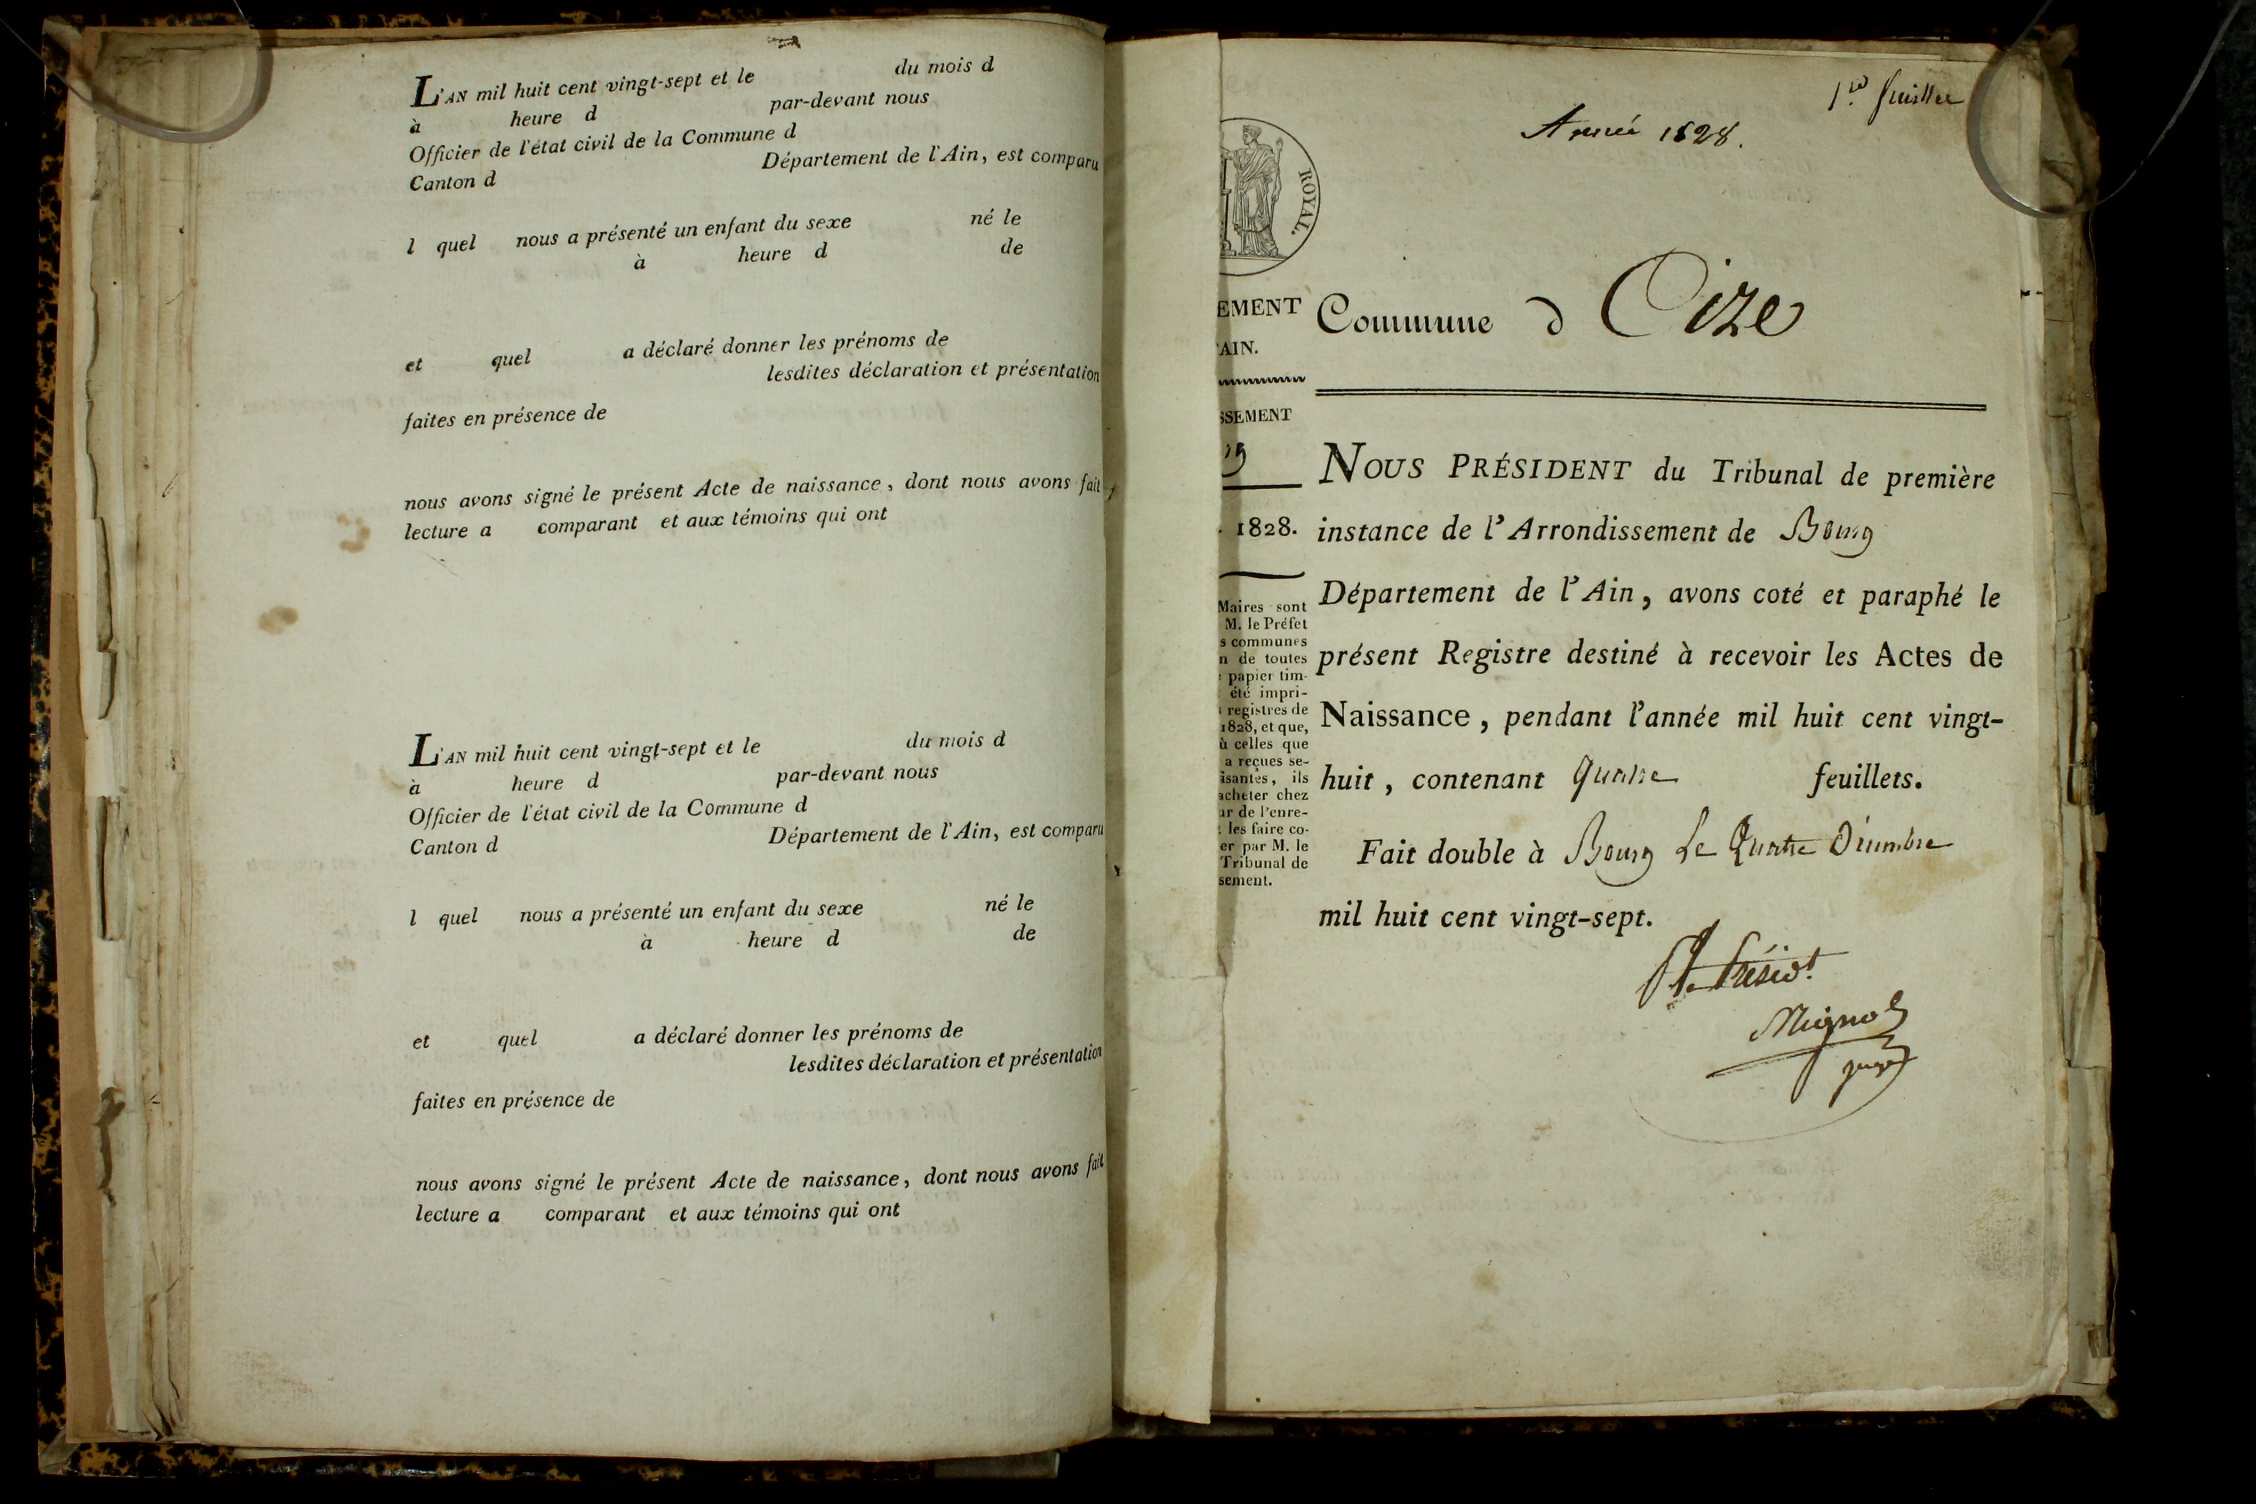 L'AN mil huit cent vingt-sept et le du mois d
à heure d par-devant nous
Officier de l'état civil de la Commune d
Canton d Département de l'Ain, est comparu
l quel nous a présenté un enfant du sexe né le
à heure d de
et quel a déclaré donner les prénoms de
lesdites déclaration et présentation
faites en présence de
nous avons signé le présent Acte de naissance, dont nous avons fait
lecture a comparant et aux témoins qui ont
L'AN mil huit cent vingt-sept et le du mois d
à heure d par-devant nous
Officier de l'état civil de la Commune d
Canton d Département de l'Ain, est comparu
l quel nous a présenté un enfant du sexe né le
à heure d de
et quel a déclaré donner les prénoms de
lesdites déclaration et présentation
faites en présence de
nous avons signé le présent Acte de naissance, dont nous avons fait
lecture a comparant et aux témoins qui ont
1er feuillet
Année 1828.
ROYAL.
EMENT
'AIN.
SSEMENT
1828.
Maires sont
M. le Préfet
s communes
n de toutes
papier tim-
été impri-
registres de
1828, et que,
ù celles que
a reçues se-
isantes, ils
acheter chez
ur de l'enre-
les faire co-
er par M. le
Tribunal de
sement.
Commune d Cize
NOUS PRÉSIDENT du Tribunal de première
instance de l'Arrondissement de Bourg
Département de l'Ain, avons coté et paraphé le
présent Registre destiné à recevoir les Actes de
Naissance, pendant l'année mil huit cent vingt-
huit, contenant quatre feuillets.
Fait double à Bourg le quatre Décembre
mil huit cent vingt-sept.
Présidt.
juge